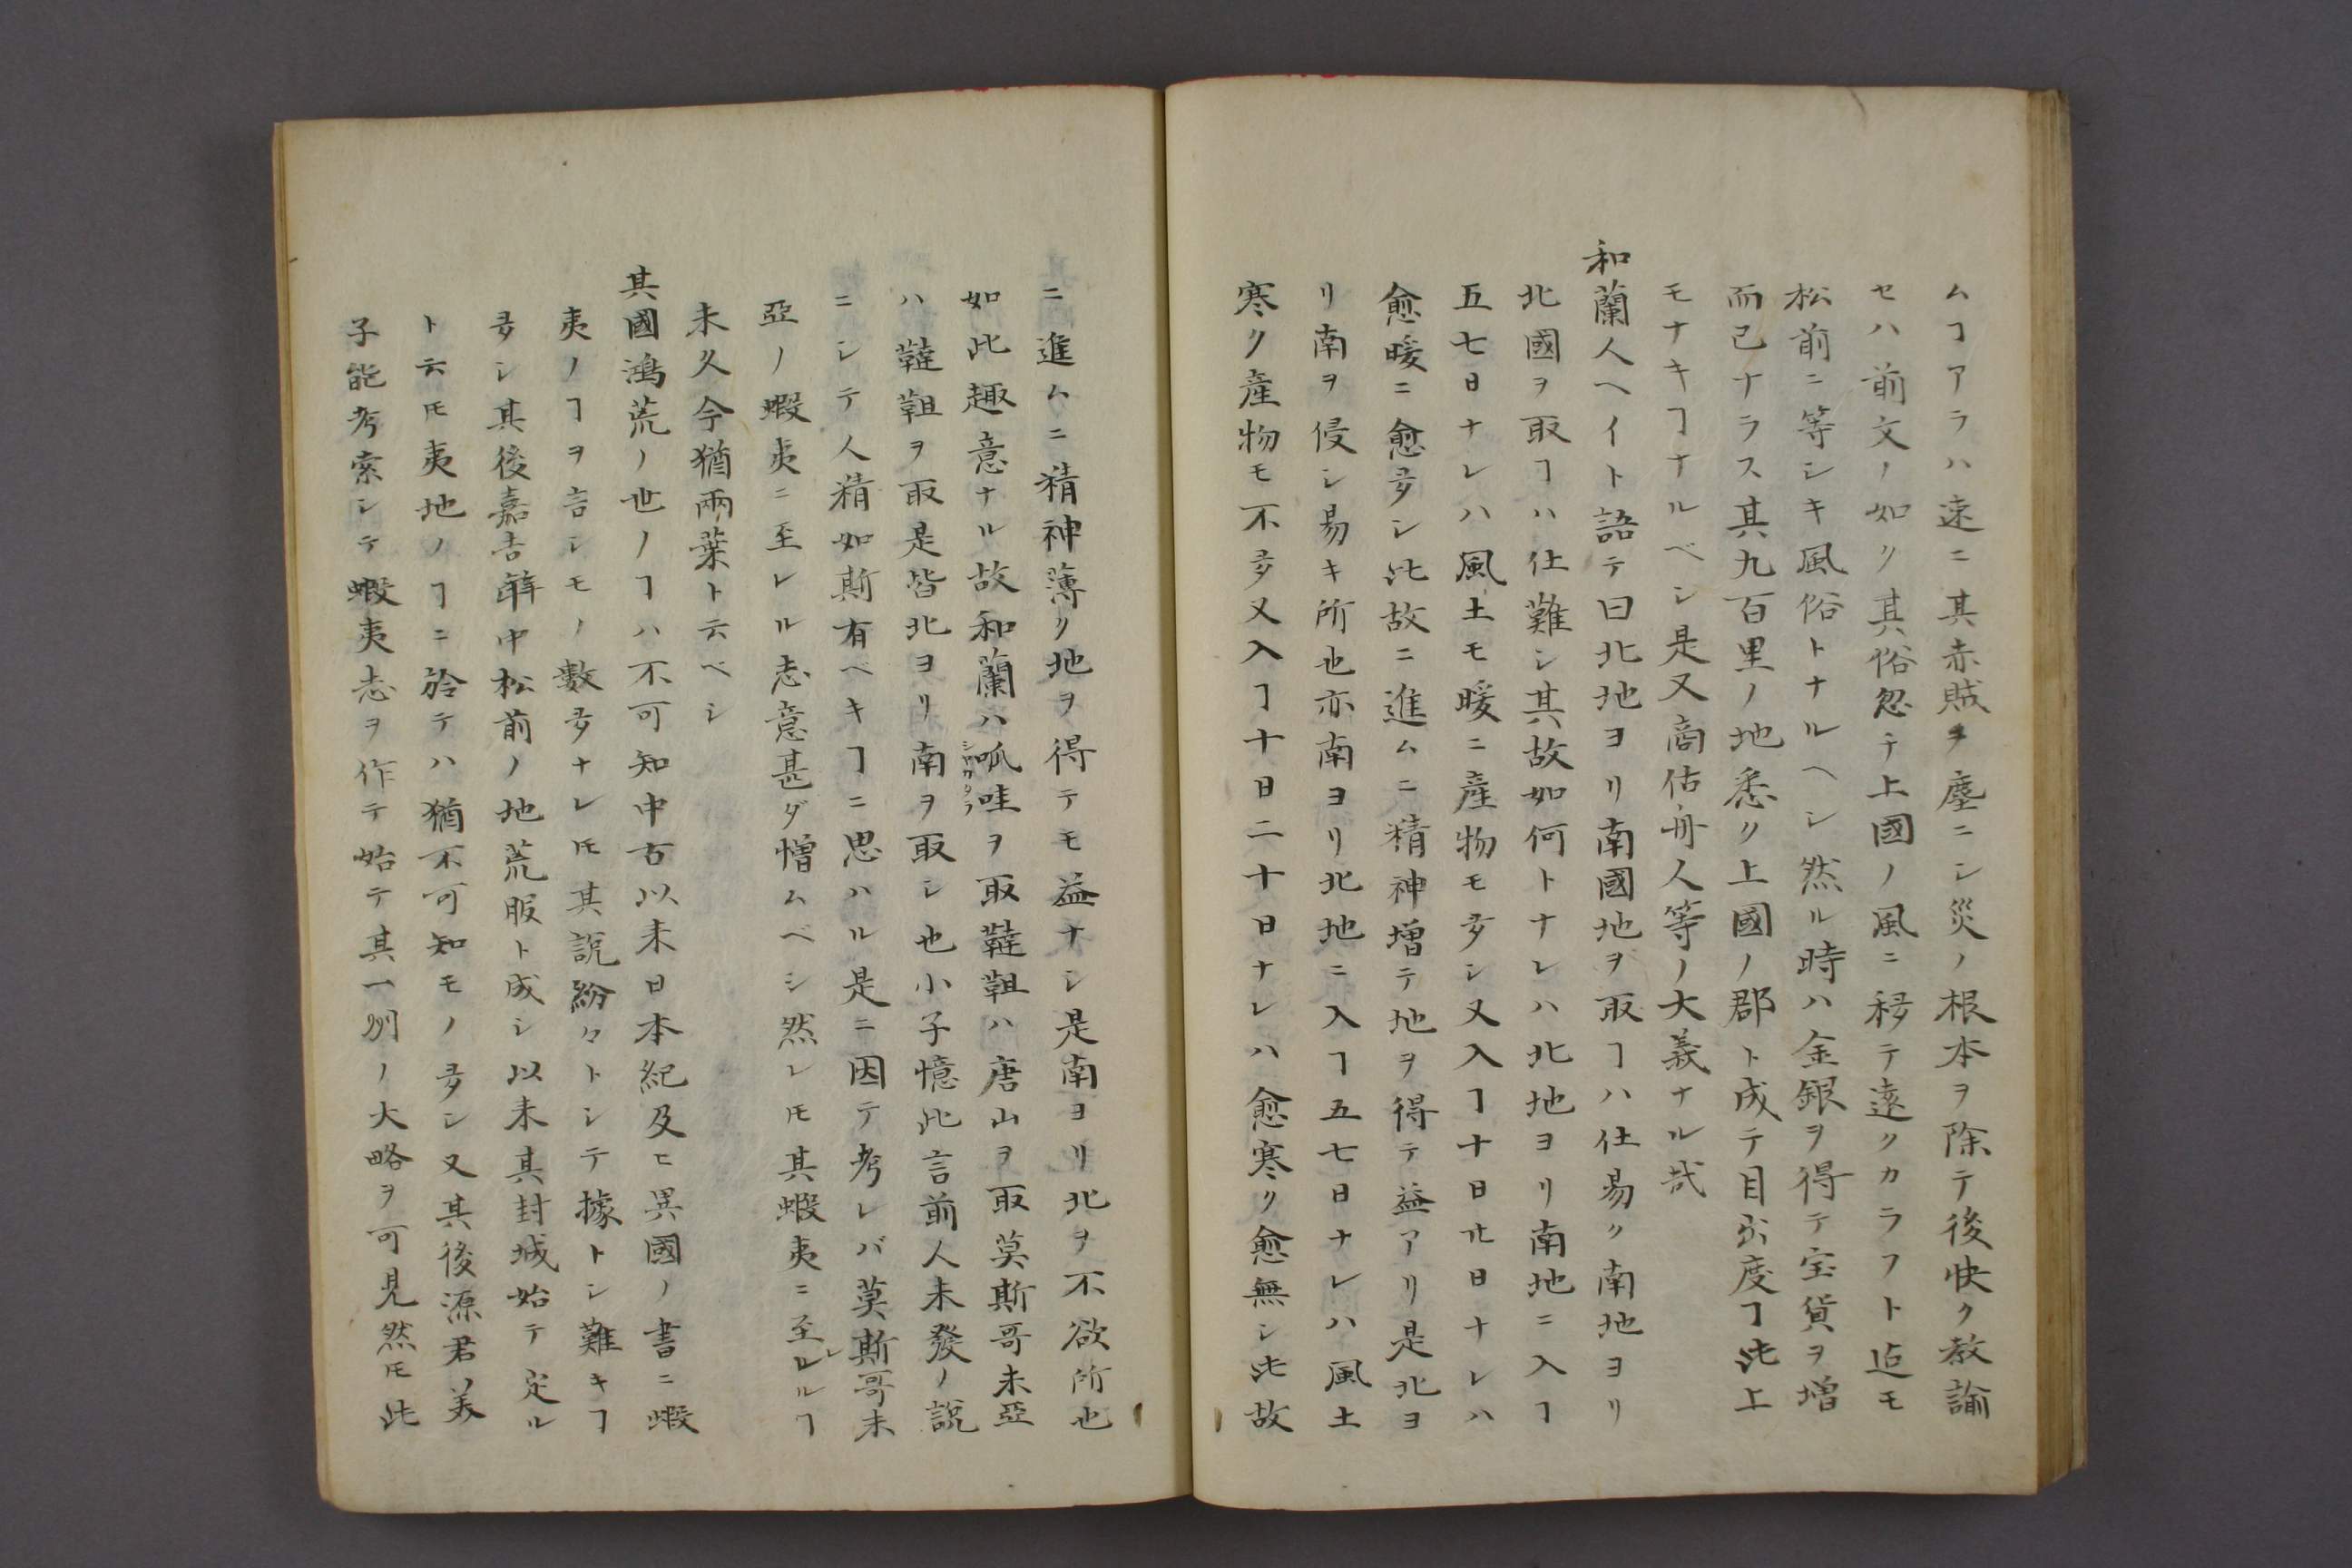 ムヿアラハ遠ニ其赤賊ヲ塵ニシ災ノ根本ヲ除テ後快ク教諭
セハ前文ノ如ク其俗忽チ上國ノ風ニ移テ遠クカラフト迠モ
松前ニ等シキ風俗トナルヘシ然ル時ハ金銀ヲ得テ宝貨ヲ増
而已ナラス其九百里ノ地悉ク上國ノ郡ト成テ目出度ヿ此上
モナキヿナルベシ是又商估舟人等ノ大義ナル哉
和蘭人ヘイト語テ曰北地ヨリ南國地ヲ取ヿハ仕易ク南地ヨリ
北國ヲ取ヿハ仕難シ其故如何トナレハ北地ヨリ南地ニ入ヿ
五七日ナレハ風土モ暖ニ産物モ多シ又入ヿ十日廿日ナレハ
愈暖ニ愈多シ此故ニ進ムニ精神増テ地ヲ得テ益アリ是北ヨ
リ南ヲ侵シ易キ所也亦南ヨリ北地ニ入ヿ五七日ナレハ風土
寒ク産物モ不多又入ヿ十日二十日ナレハ愈寒ク愈無シ此故
ニ進ムニ精神薄ク地ヲ得テモ益ナシ是南ヨリ北ヲ不欲所也
如此趣意ナル故和蘭ハ呱哇ヲ取韃靼ハ唐山ヲ取莫斯哥未亞
ハ韃靼ヲ取是皆北ヨリ南ヲ取シ也小子憶此言前人未發ノ説
ニシテ人精如斯有ベキヿニ思ハル是ニ因テ考レバ莫斯哥未
亞ノ蝦夷ニ至レル志意甚ダ憎ムベシ然レ𪜈其蝦夷ニ至レルヿ
未久今猶兩葉ト云ベシ
其國鴻荒ノ世ノヿハ不可知中古以来日本紀及ヒ異國ノ書ニ蝦
夷ノヿヲ言シモノ數多ナレ𪜈其説紛々トシテ據トシ難キヿ
多シ其後嘉吉年中松前ノ地荒服ト成シ以来其封城始テ定ル
ト云𪜈夷地ノヿニ於テハ猶不可知モノ多シ又其後源君美
子能考索シテ蝦夷志ヲ作テ始テ其一列ノ大略ヲ可見然𪜈此